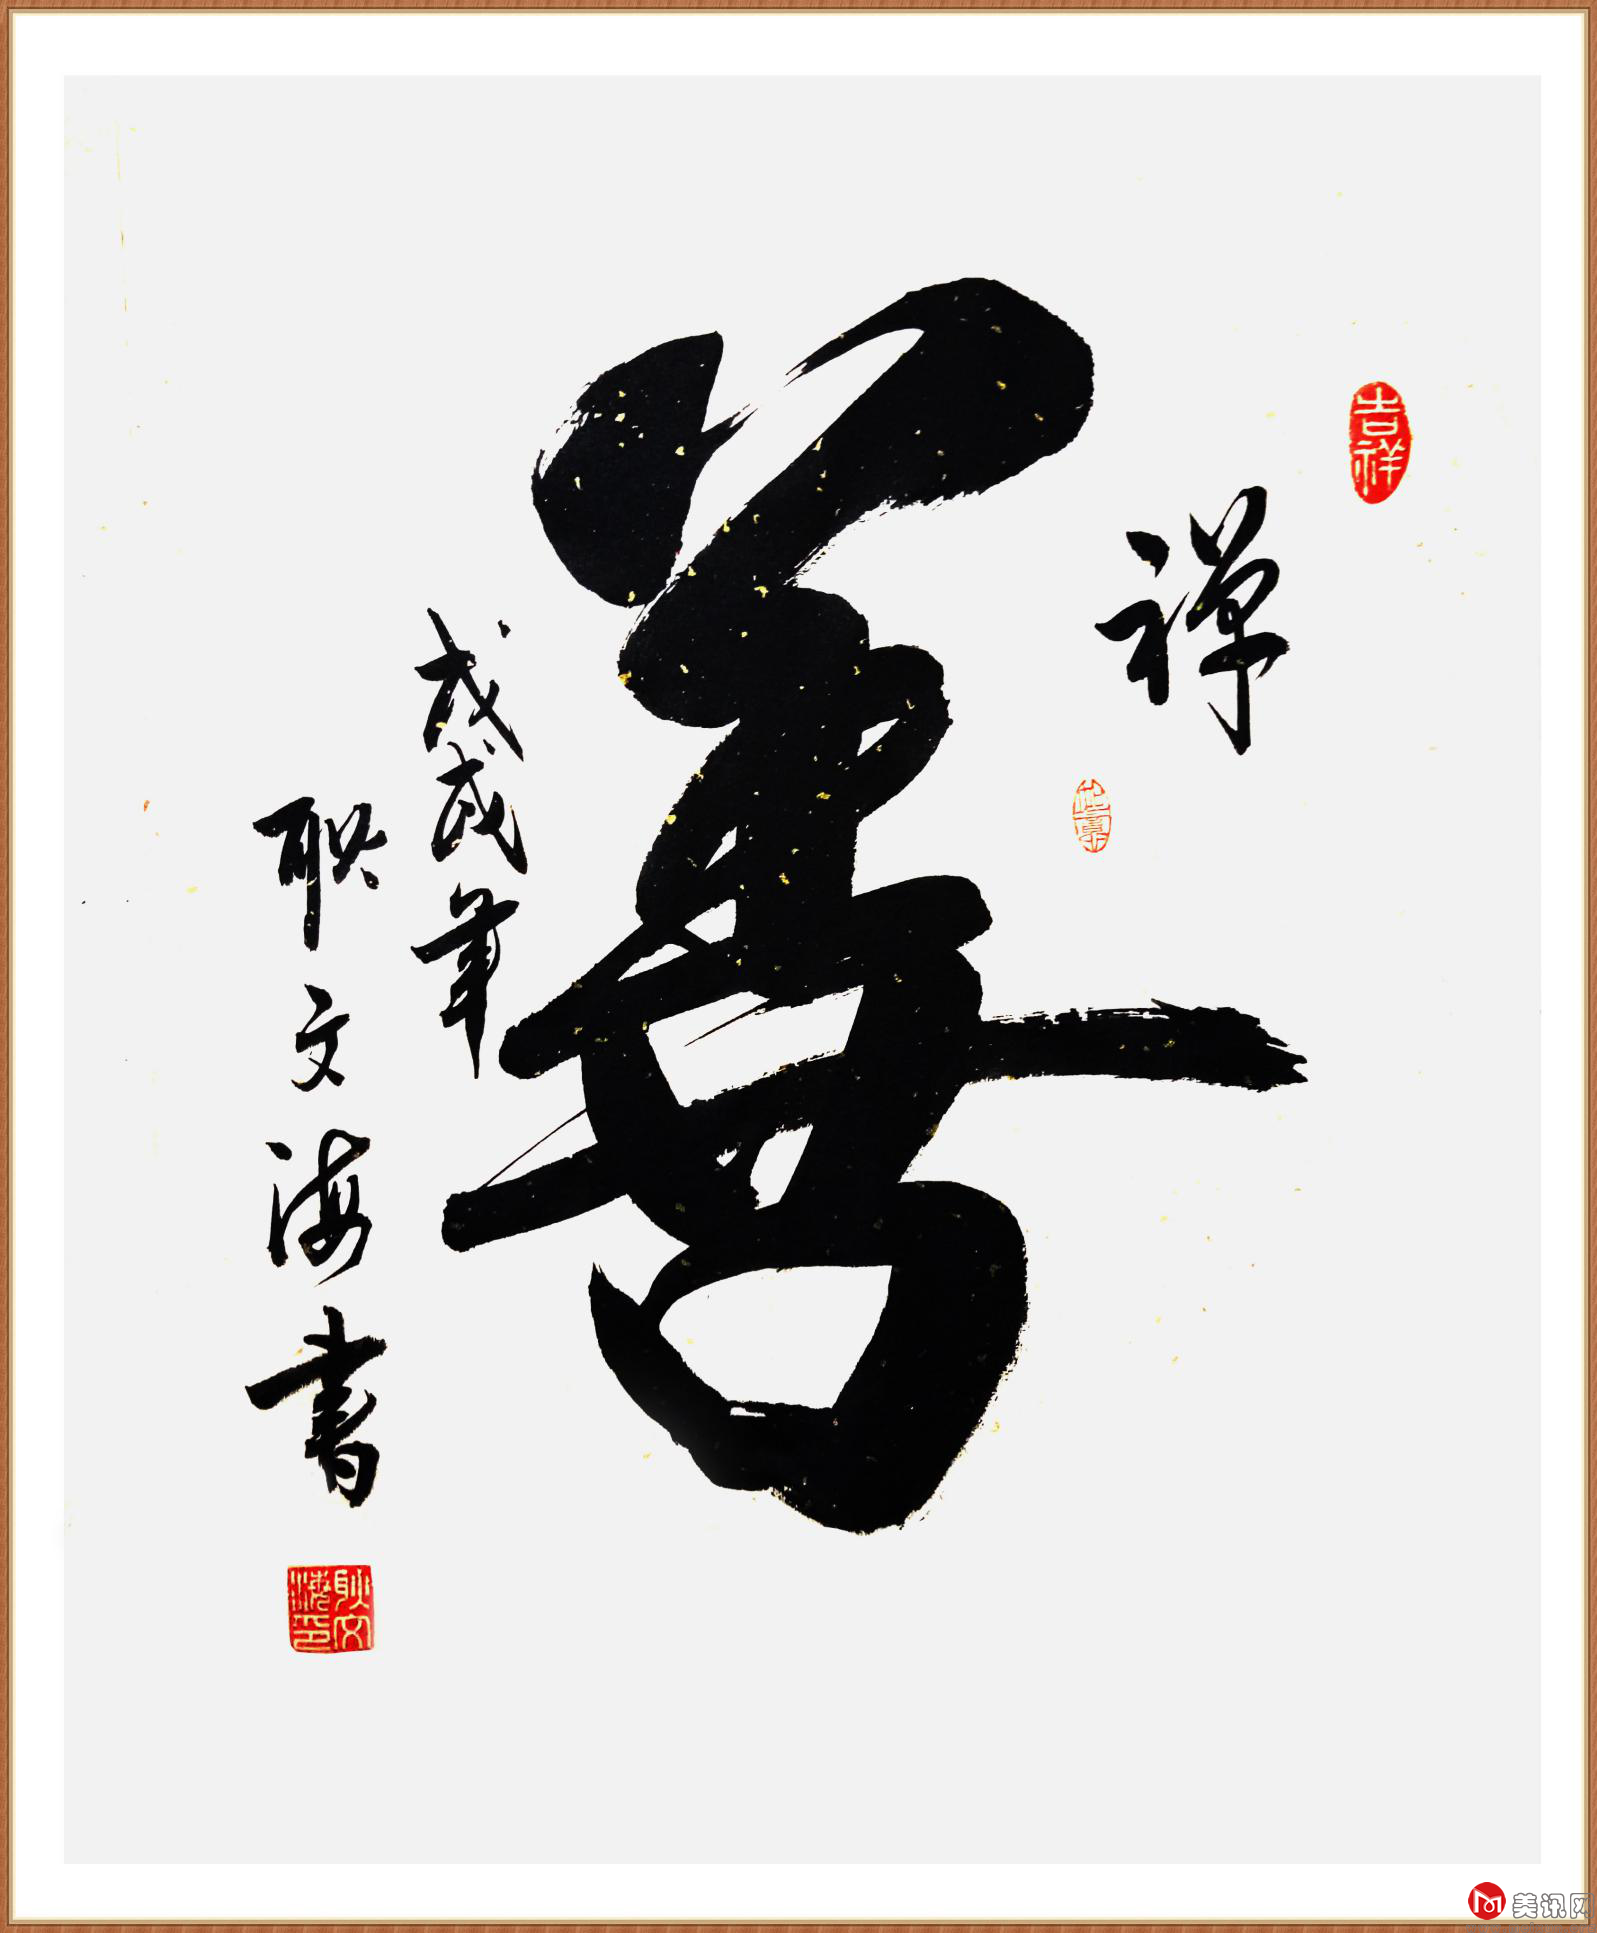 吉祥
禪
善
戊戌年
耿文海書
耿文海印
美讯网